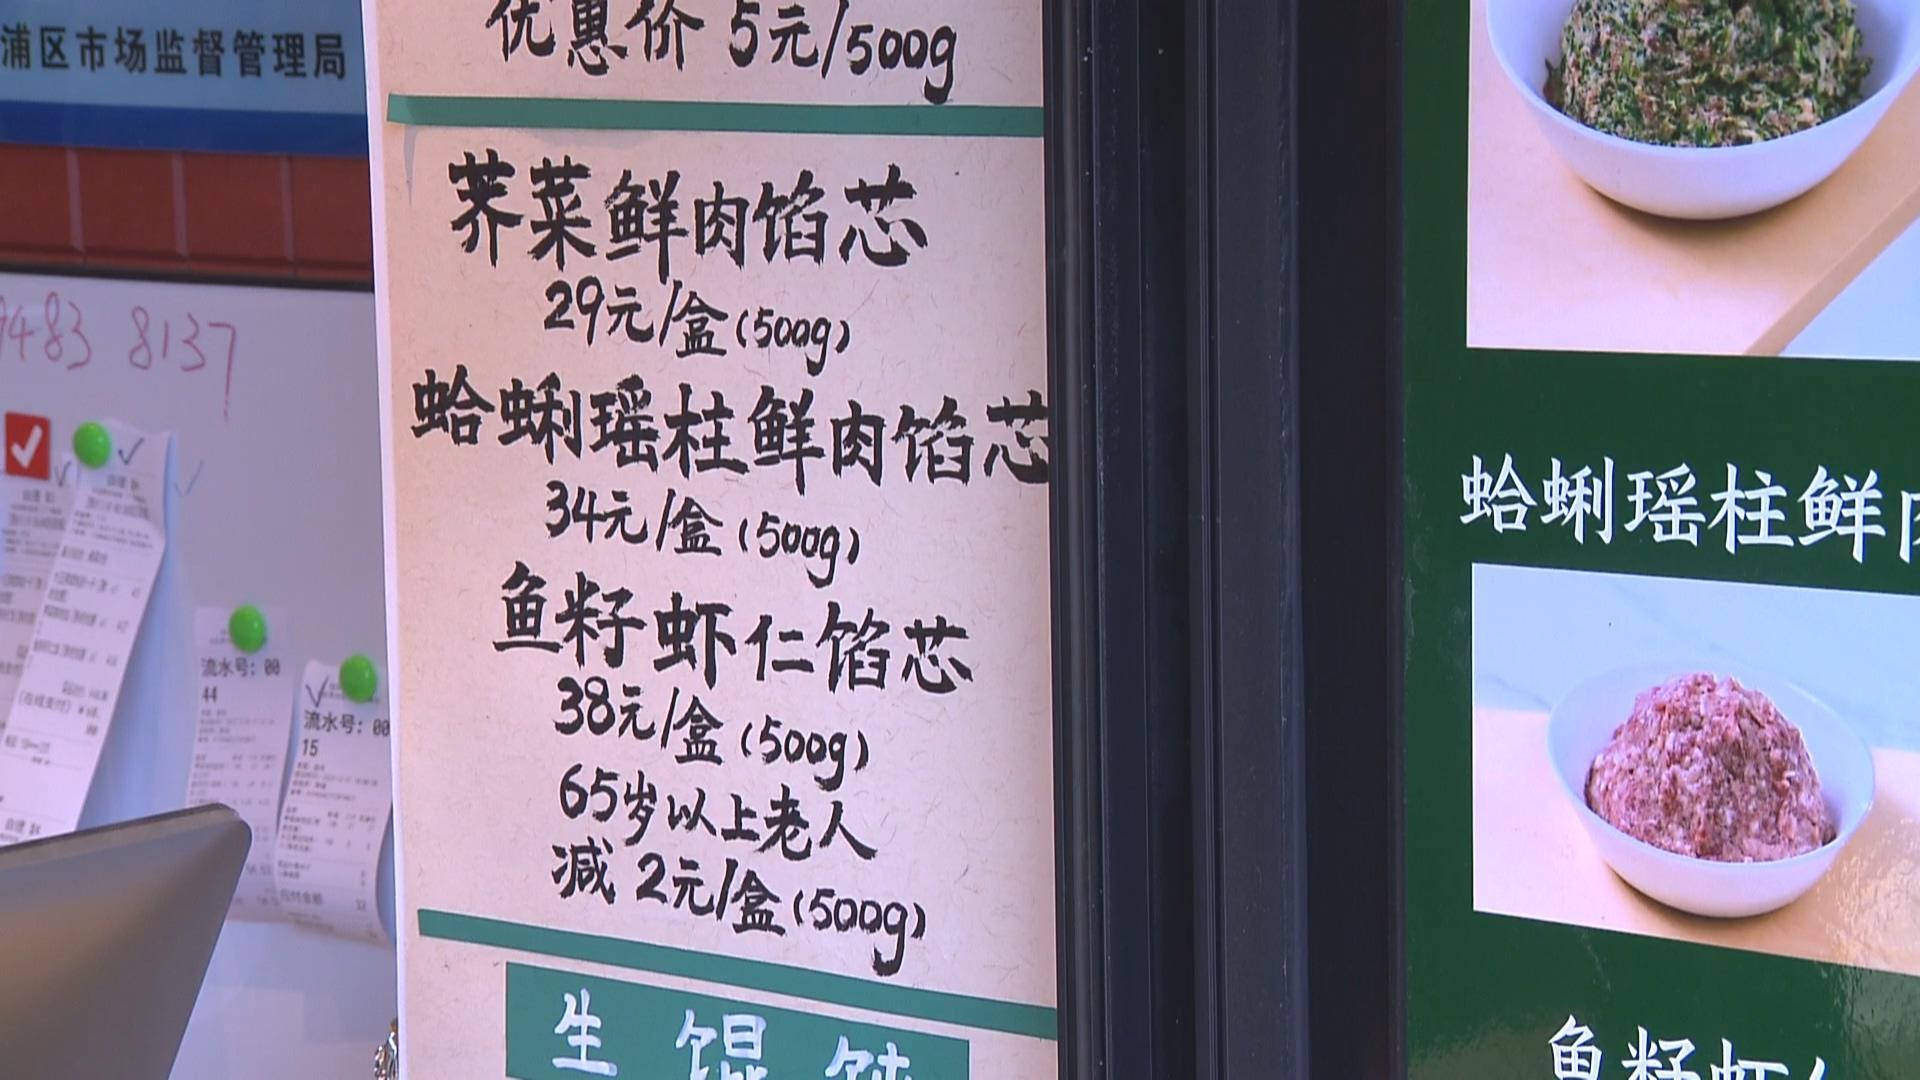 浦区市场监督管理局
9483 8137
流水号：00
44
流水号：00
15
优惠价 5元/500g
荠菜鲜肉馅芯
29元/盒(500g)
蛤蜊瑶柱鲜肉馅芯
34元/盒(500g)
鱼籽虾仁馅芯
38元/盒(500g)
65岁以上老人
减 2元/盒(500g)
生馄饨
蛤蜊瑶柱鲜肉
鱼籽虾仁